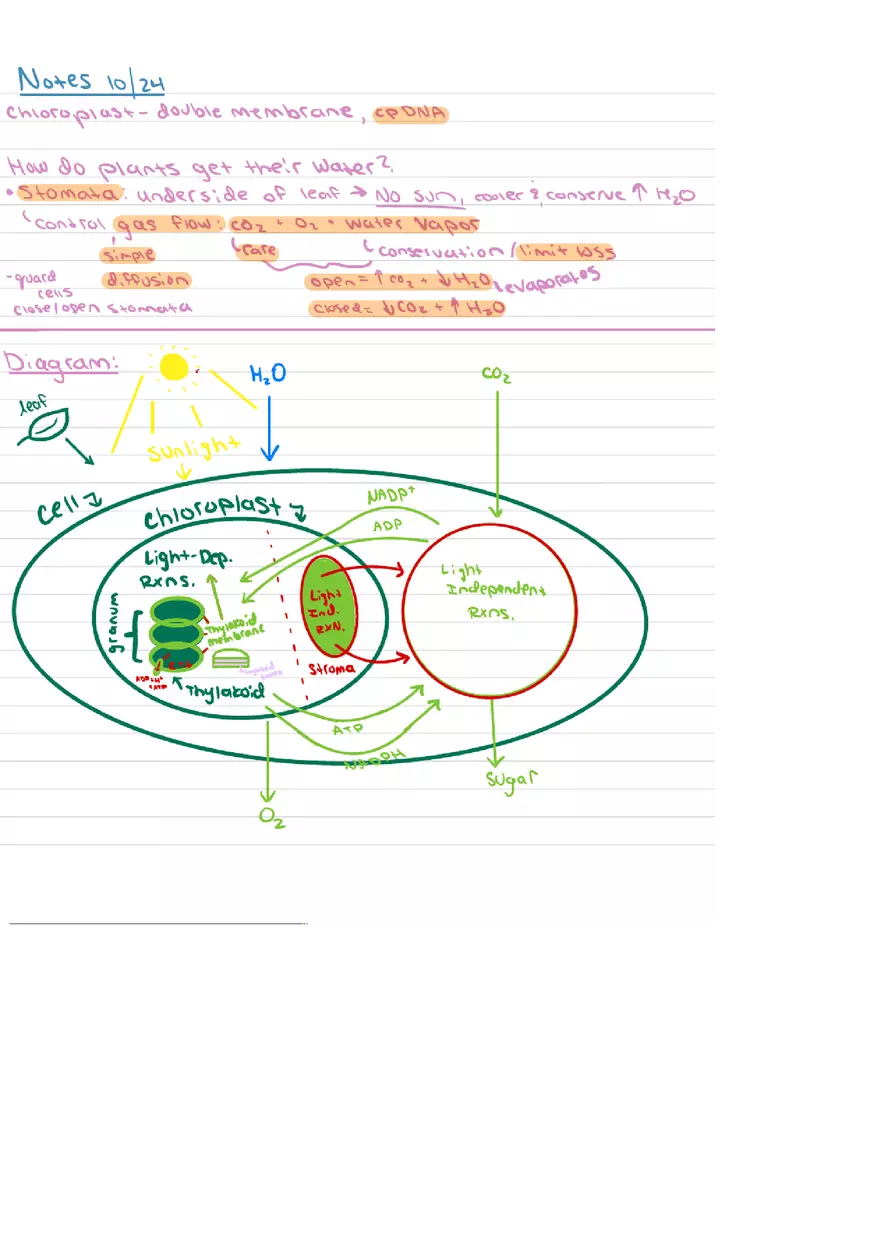 Notes 10/24
Chloroplast - double membrane, cpDNA
How do plants get their water?
• Stomata: underside of leaf → No sun, cooler & conserve ↑ H₂O
control gas flow: CO₂ + O₂ + water vapor
simple rare conservation/limit loss
-guard diffusion open = ↑ CO₂ + ↓ H₂O evaporates
cells
close/open stomata closed = ↓ CO₂ + ↑ H₂O
Diagram:
H₂O
CO₂
leaf
sunlight
cell
chloroplast
NADP⁺
ADP
Light-Dep.
Rxns.
Light
Independent
Rxns.
Light
Ind.
RXN.
granum
Thylakoid
membrane
Stroma
Thylakoid
ATP
NADPH
Sugar
O₂